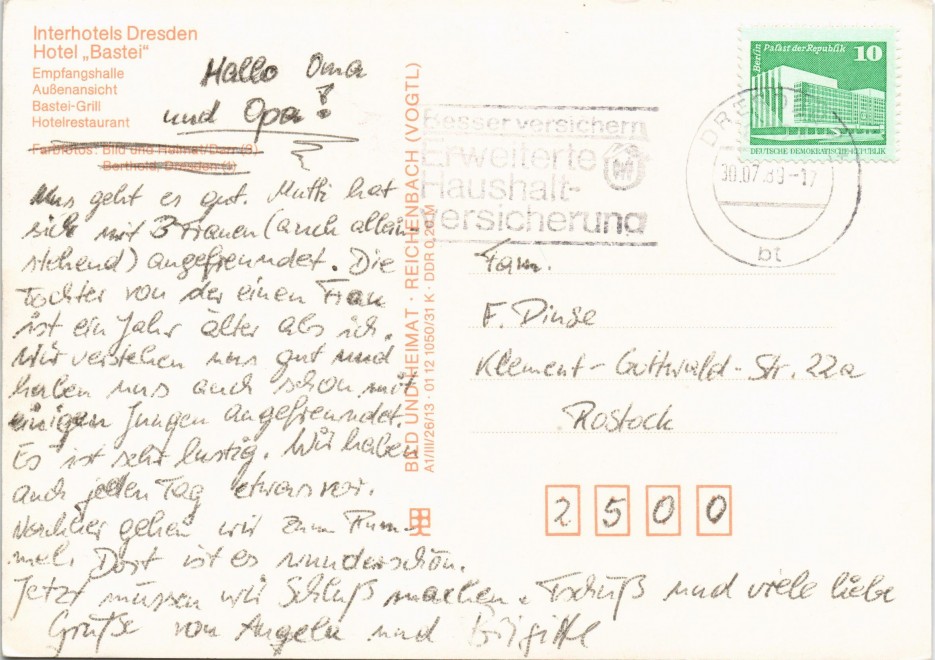 Interhotels Dresden
Hotel „Bastei“
Empfangshalle
Außenansicht
Bastei-Grill
Hotelrestaurant
Farbfotos: Bild und Heimat/Darr (3)
Berthold, Dresden (1)
Hallo Oma
und Opa!
Uns geht es gut. Mutti hat
sich mit 3 Frauen (auch allein-
stehend) angefreundet. Die
Tochter von der einen Frau
ist ein Jahr älter als ich.
Wir verstehen uns gut und
haben uns auch schon mit
einigen Jungen angefreundet.
Es ist sehr lustig. Wir haben
auch jeden Tag etwas vor.
Nachher gehen wir zum Rum-
mel. Dort ist es wunderschön.
Jetzt müssen wir Schluß machen. Tschüß und viele liebe
Grüße von Angela und Brigitte
BILD UND HEIMAT · REICHENBACH (VOGTL)
A1/III/26/13 · 01 12 1050/31 K · DDR 0,20 M
Besser versichern
Erweiterte
Haushalt-
versicherung
Berlin Palast der Republik 10
DEUTSCHE DEMOKRATISCHE REPUBLIK
30.07.89-17
bt
Fam.
F. Dinse
Klement-Gottwald-Str. 22a
Rostock
2500